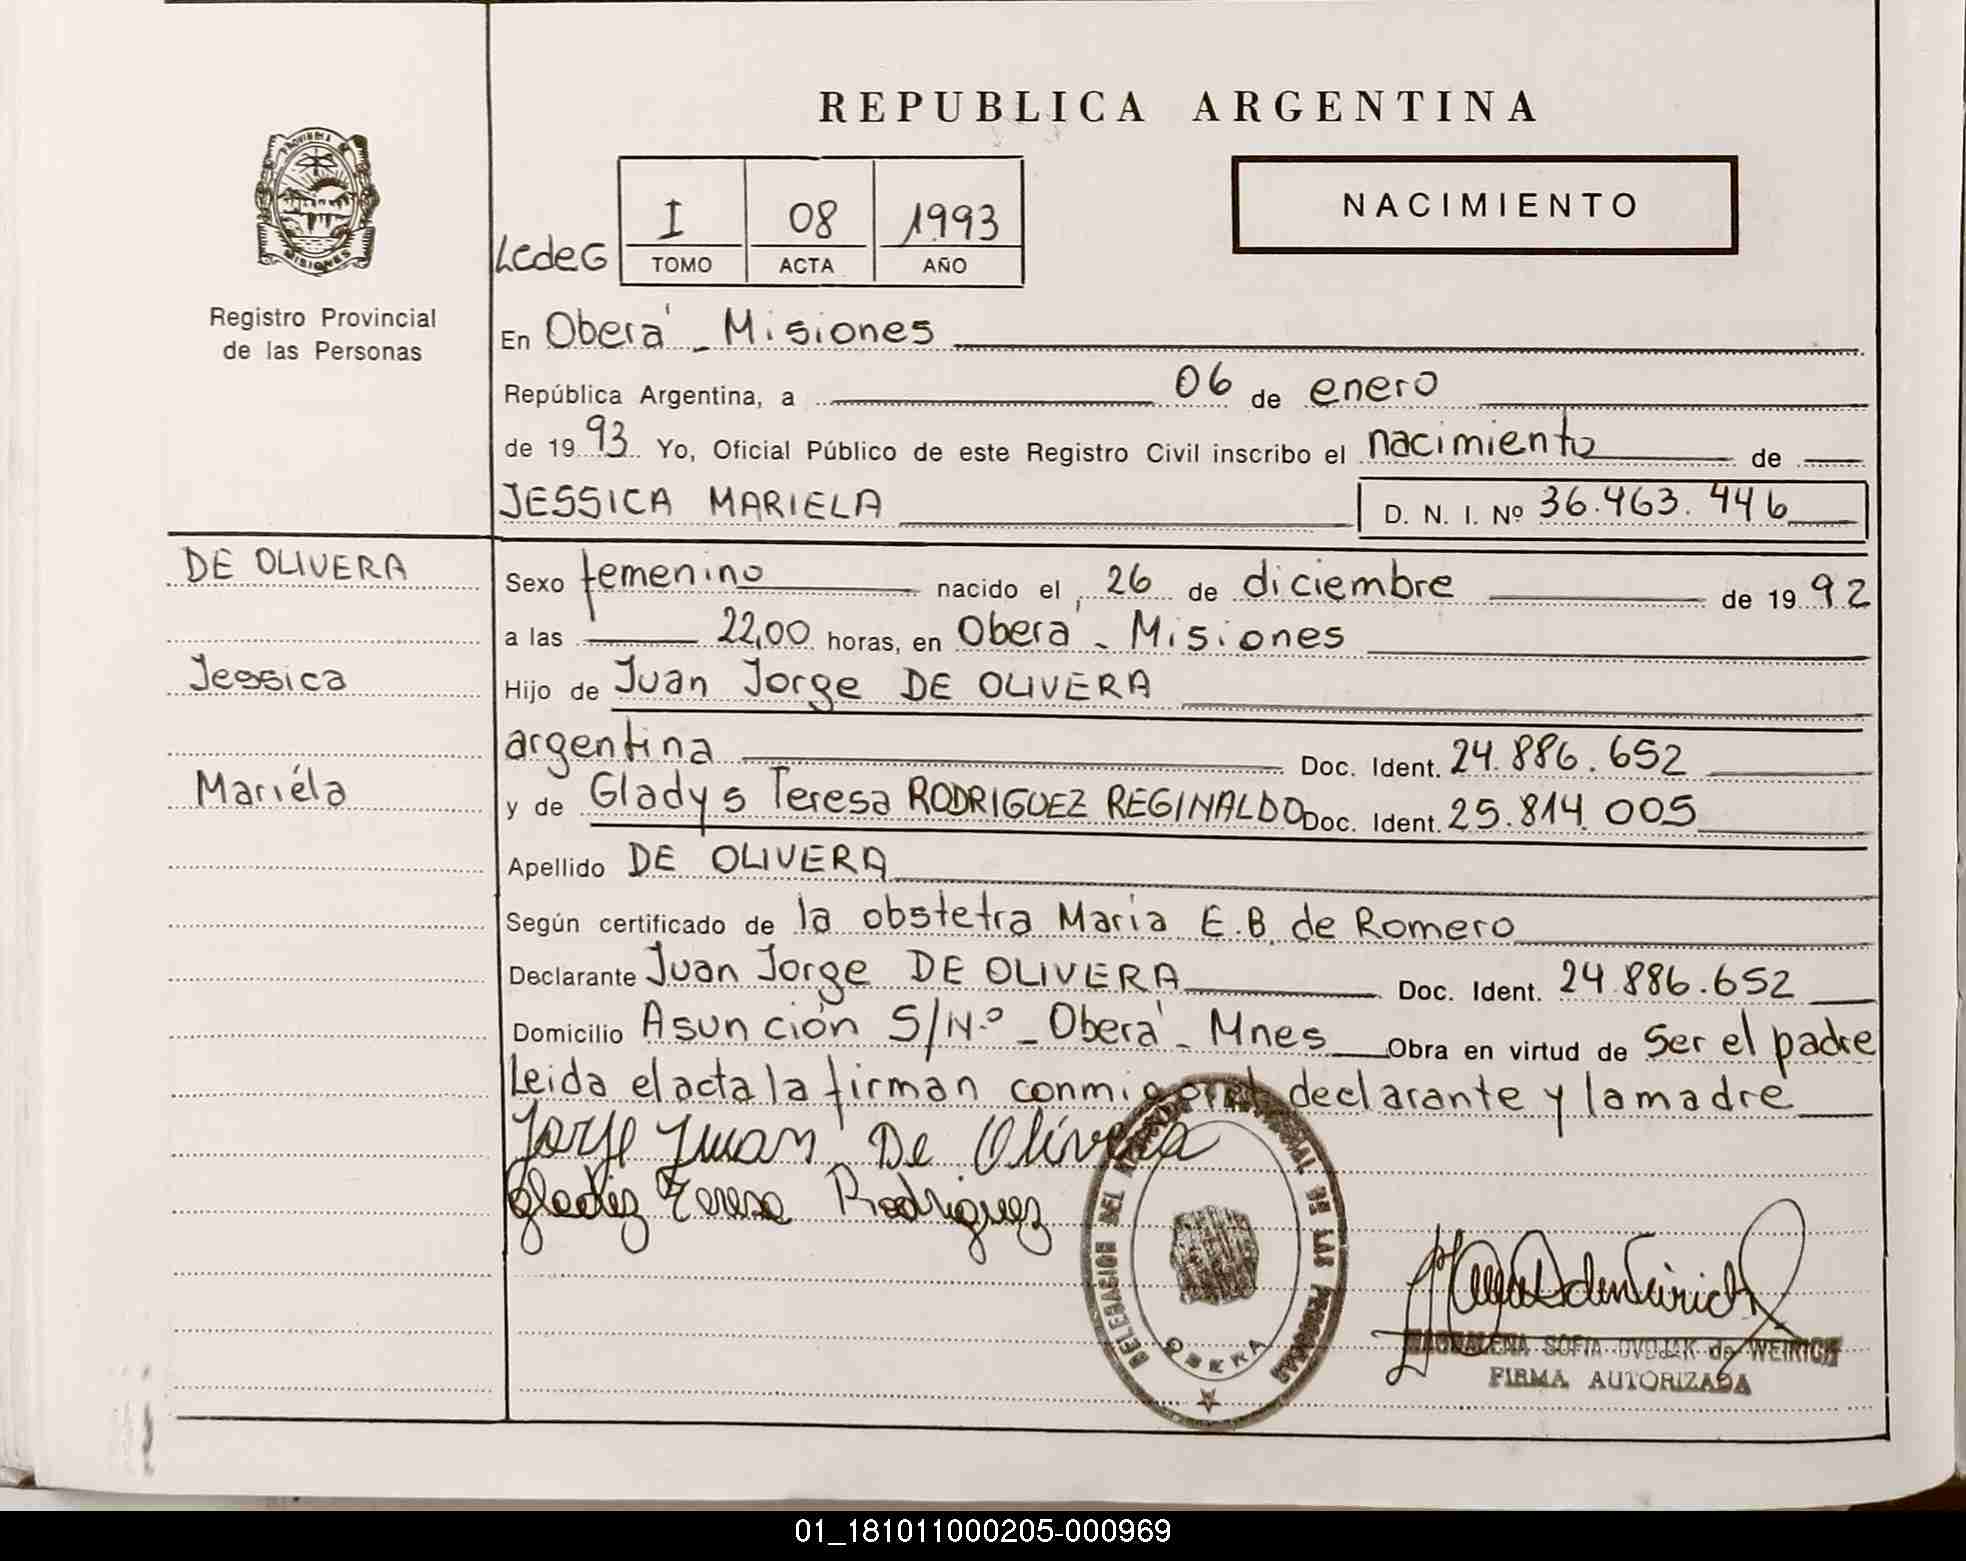 REPUBLICA ARGENTINA
PROVINCIA DE
MISIONES
Registro Provincial
de las Personas
LcdeG
I 08 1993
TOMO ACTA AÑO
NACIMIENTO
En Oberá - Misiones
República Argentina, a 06 de enero
de 1993 Yo, Oficial Público de este Registro Civil inscribo el nacimiento de
JESSICA MARIELA D. N. I. Nº 36.463.446
DE OLIVERA
Jessica
Mariéla
Sexo femenino nacido el 26 de diciembre de 1992
a las 22,00 horas, en Oberá - Misiones
Hijo de Juan Jorge DE OLIVERA
argentina Doc. Ident. 24.886.652
y de Gladys Teresa RODRIGUEZ REGINALDO Doc. Ident. 25.814.005
Apellido DE OLIVERA
Según certificado de la obstetra Maria E.B. de Romero
Declarante Juan Jorge DE OLIVERA Doc. Ident. 24.886.652
Domicilio Asunción S/N.º - Oberá - Mnes Obra en virtud de Ser el padre
Leida el acta la firman conmigo el declarante y la madre
Jorge Juan De Olivera
Gladiz Teresa Rodriguez
DELEGACION DEL REGISTRO PROVINCIAL DE LAS PERSONAS
OBERA
MAGDALENA SOFIA OVOJAK de WEIRICH
FIRMA AUTORIZADA
01_181011000205-000969